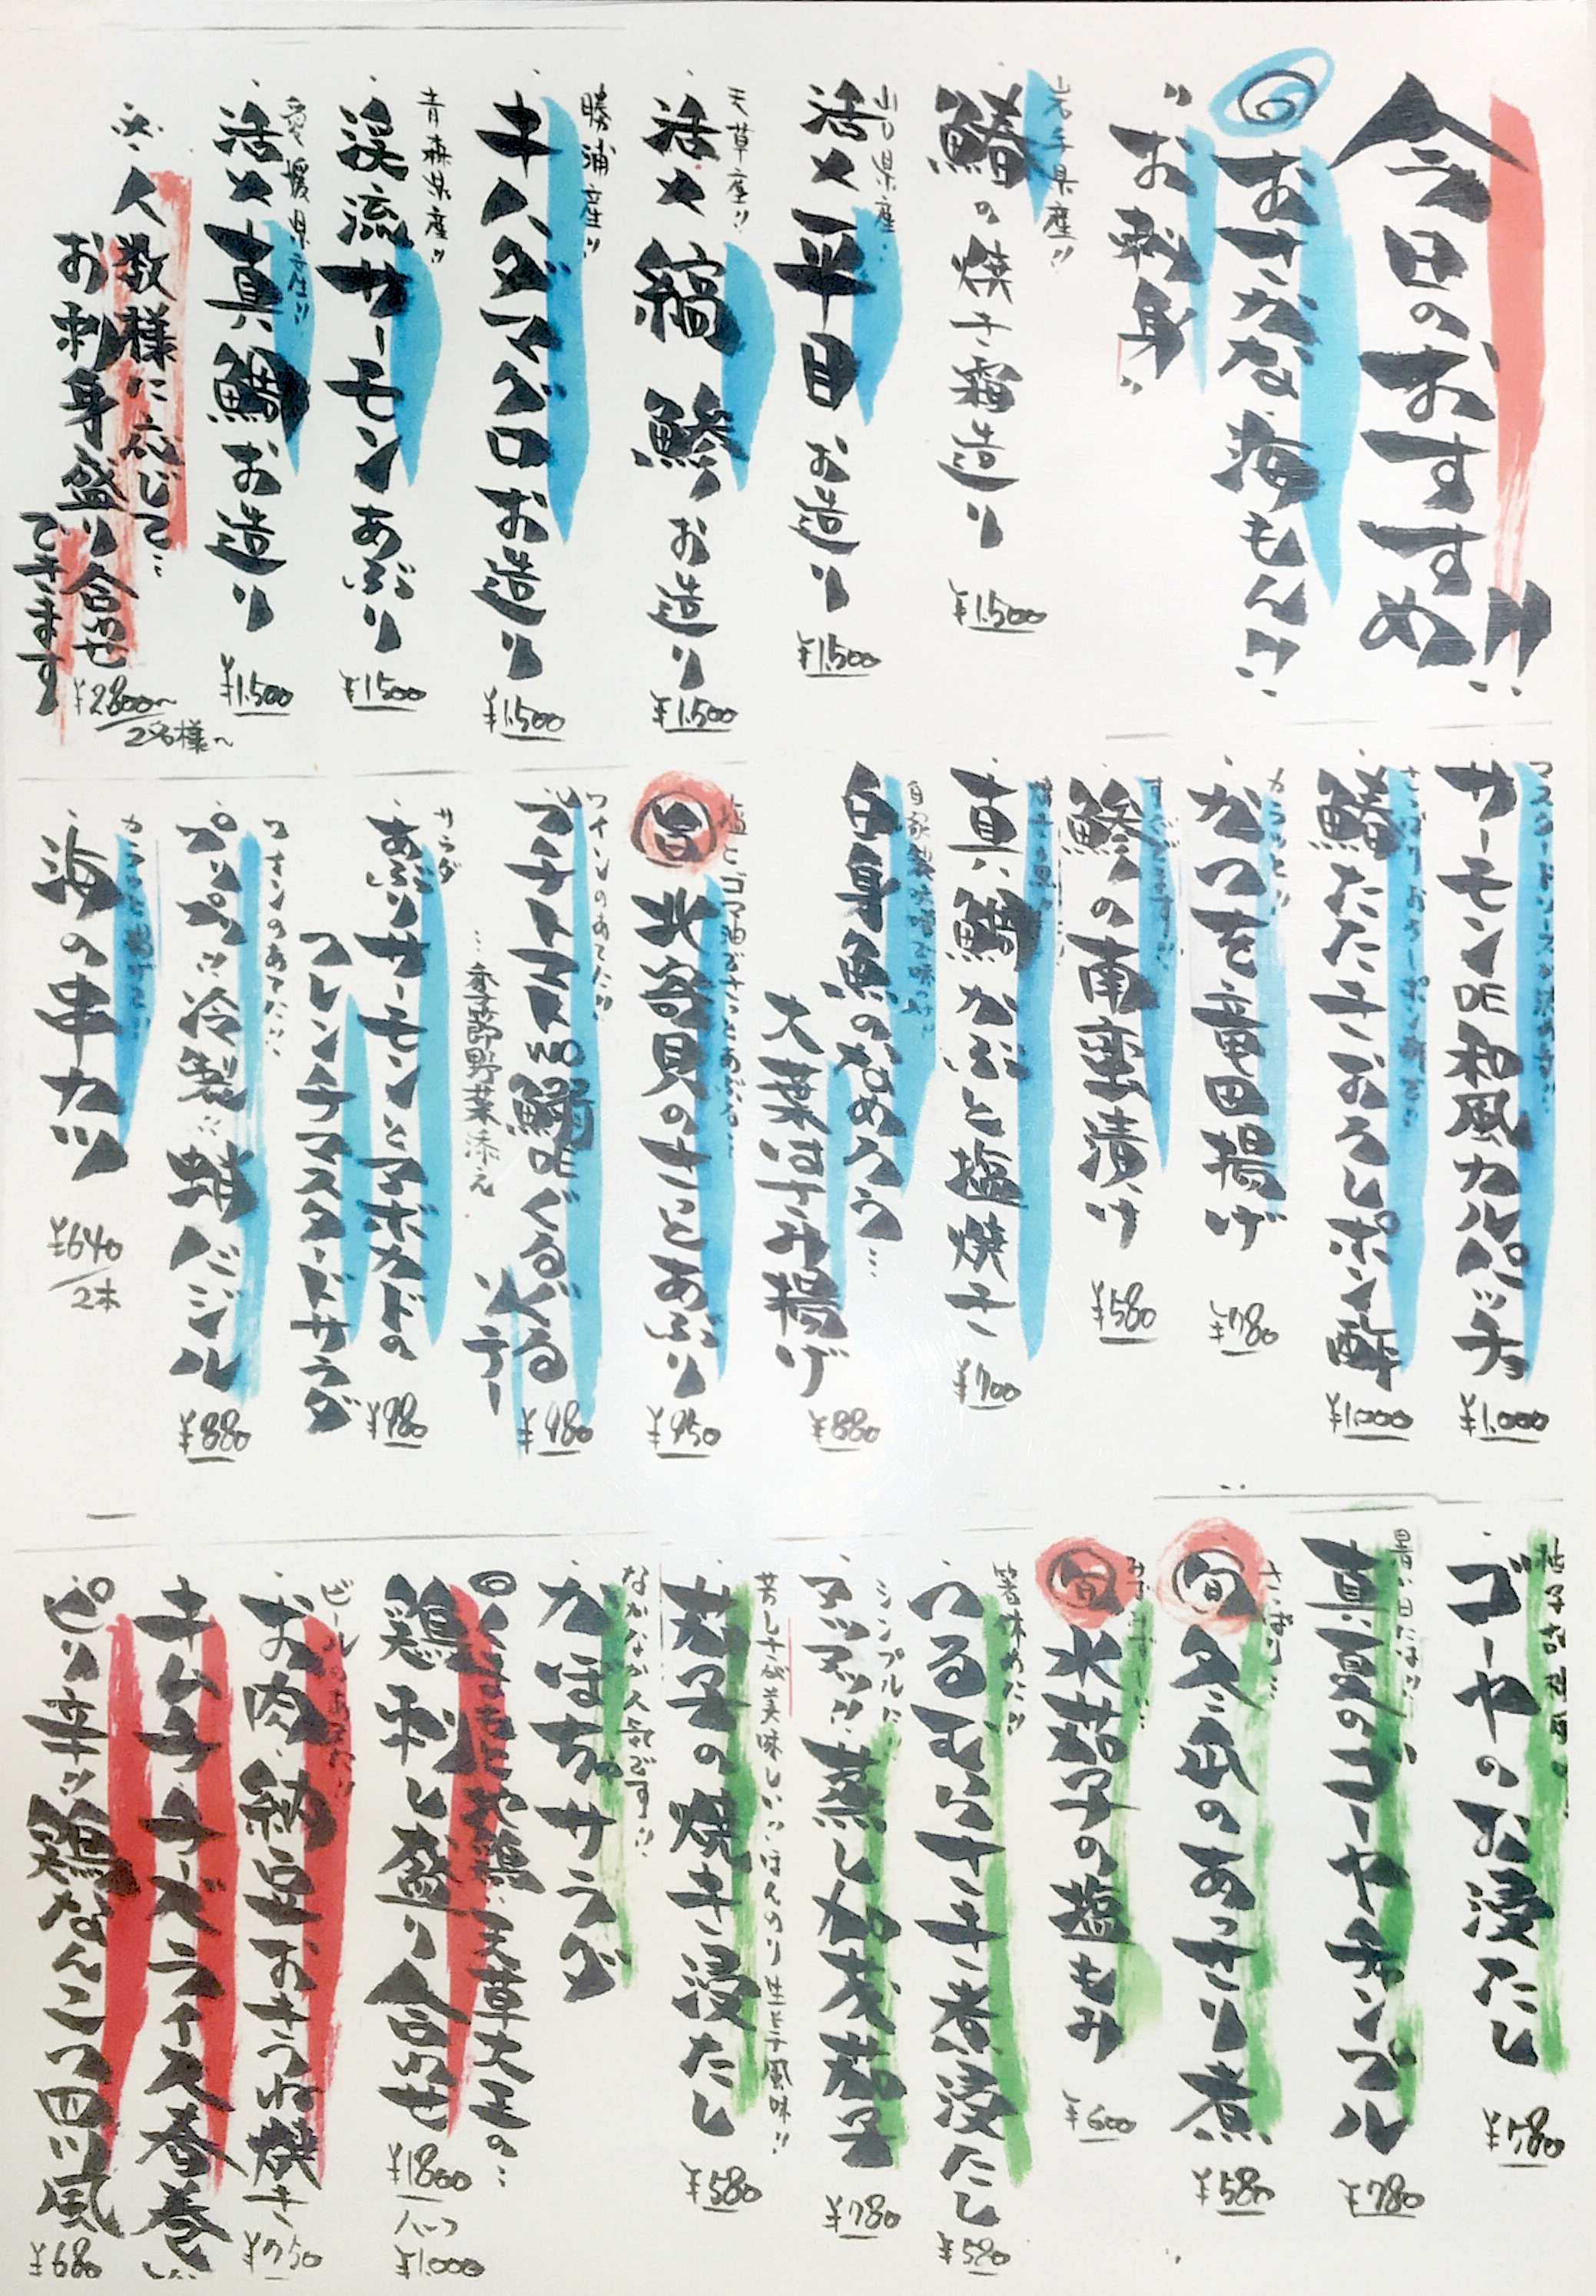 今日のおすすめ!!
おさかな海もん!!
"お刺身"
岩手県産!!
鰆の焼き霜造り
¥1,500
山口県産
活〆平目お造り
¥1,500
天草産!!
活〆縞鯵お造り
¥1,500
勝浦産!!
キハダマグロお造り
¥1,500
青森県産!!
渓流サーモンあぶり
¥1,500
愛媛県産!!
活〆真鯛お造り
¥1,500
※人数様に応じて…
お刺身盛り合せ
できます
¥2,800~
2名様~
サーモンDE和風カルパッチョ
¥1,000
鰆たたきおろしポン酢
¥1,000
カラッと!!
かつを竜田揚げ
¥780
鯵の南蛮漬け
¥580
真鯛かぶと塩焼き
¥700
白身魚のなめろう…
大葉はさみ揚げ
¥880
塩とゴマ油でさっとあぶり…
北寄貝のさっとあぶり
¥950
ワインのあてに!!
プチトマトNO鰯DEぐるぐる
ソテー
…季節野菜添え
¥980
サラダ
あぶりサーモンとアボカドの
フレンチマスタードサラダ
¥980
ワインのあてに!!
プリプリ!!冷製!!蛸バジル
¥880
海の串カツ
¥640
2本
ゴーヤのお浸たし
¥580
暑い日には!!
真夏のゴーヤチャンプル
¥780
さっぱり…
旬 冬瓜のあっさり煮
¥580
旬 水茄子の塩もみ
¥600
箸休めに!!
つるむらさき煮浸たし
¥580
シンプルに
アツアツ!!蒸し加茂茄子
¥780
茄子の焼き浸たし
¥580
なかなか人気です!!
かぼちゃサラダ
くまもと地鶏:天草大王の…
鶏刺し盛り合せ
¥1,800
ハーフ
¥1,000
ビールのあてに!!
お肉納豆おきつね焼き
¥750
キムチチーズライス春巻
ピリ辛ッ鶏なんこつ四川風
¥680